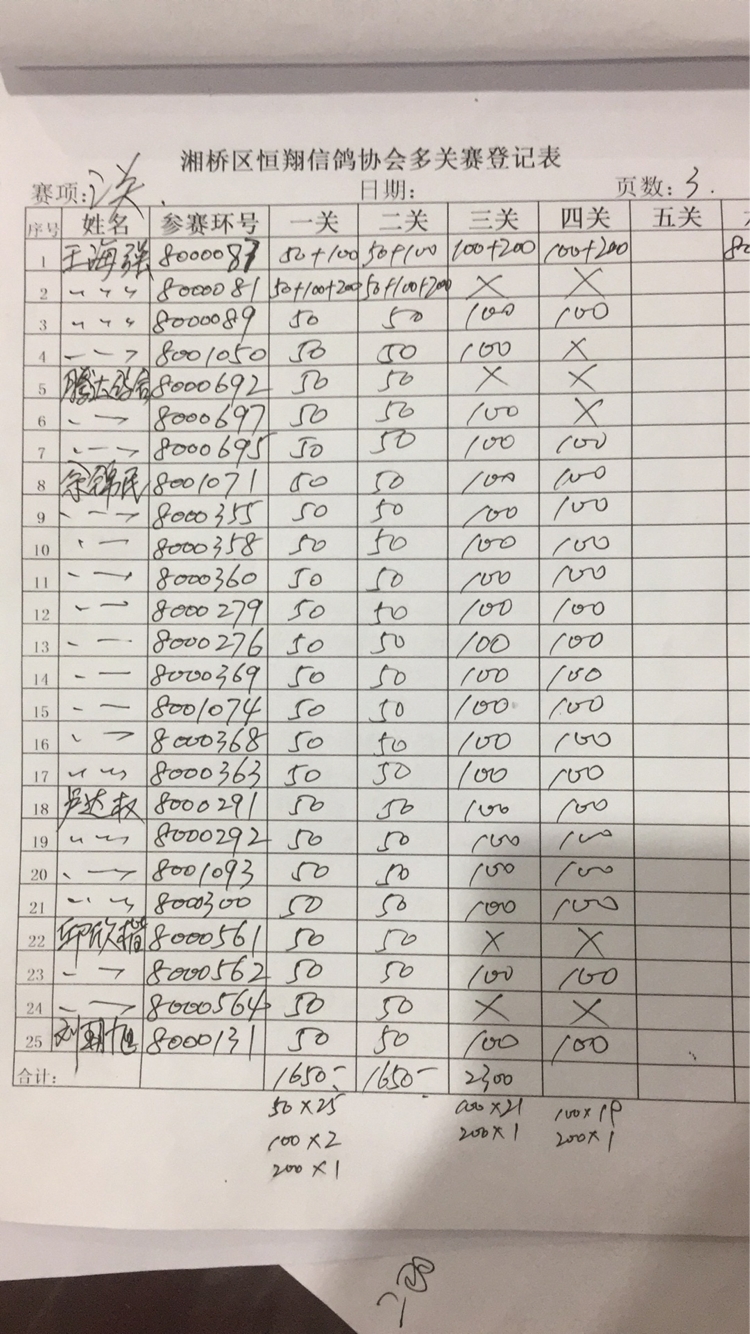 湘桥区恒翔信鸽协会多关赛登记表
赛项: 2关. 日期: 页数: 3.
序号 姓名 参赛环号 一关 二关 三关 四关 五关
1 王海强 8000087 50+100 50+100 100+200 100+200
2 〃 〃 〃 8000081 50+100+200 50+100+200 × ×
3 〃 〃 〃 8000089 50 50 100 100
4 〃 〃 〃 8001050 50 50 100 ×
5 腾达鸽舍 8000692 50 50 × ×
6 〃 〃 8000697 50 50 100 ×
7 〃 〃 8000695 50 50 100 100
8 余锦民 8001071 50 50 100 100
9 〃 〃 8000355 50 50 100 100
10 〃 〃 8000358 50 50 100 100
11 〃 〃 8000360 50 50 100 100
12 〃 〃 8000279 50 50 100 100
13 〃 〃 8000276 50 50 100 100
14 〃 〃 8000369 50 50 100 100
15 〃 〃 8001074 50 50 100 100
16 〃 〃 8000368 50 50 100 100
17 〃 〃 8000363 50 50 100 100
18 卢达权 8000291 50 50 100 100
19 〃 〃 8000292 50 50 100 100
20 〃 〃 8001093 50 50 100 100
21 〃 〃 8000300 50 50 100 100
22 邱欣楷 8000561 50 50 × ×
23 〃 〃 8000562 50 50 100 100
24 〃 〃 8000564 50 50 × ×
25 刘朝旭 8000131 50 50 100 100
合计: 1650- 1650- 2300
50×25 100×21 100×19
100×2 200×1 200×1
200×1